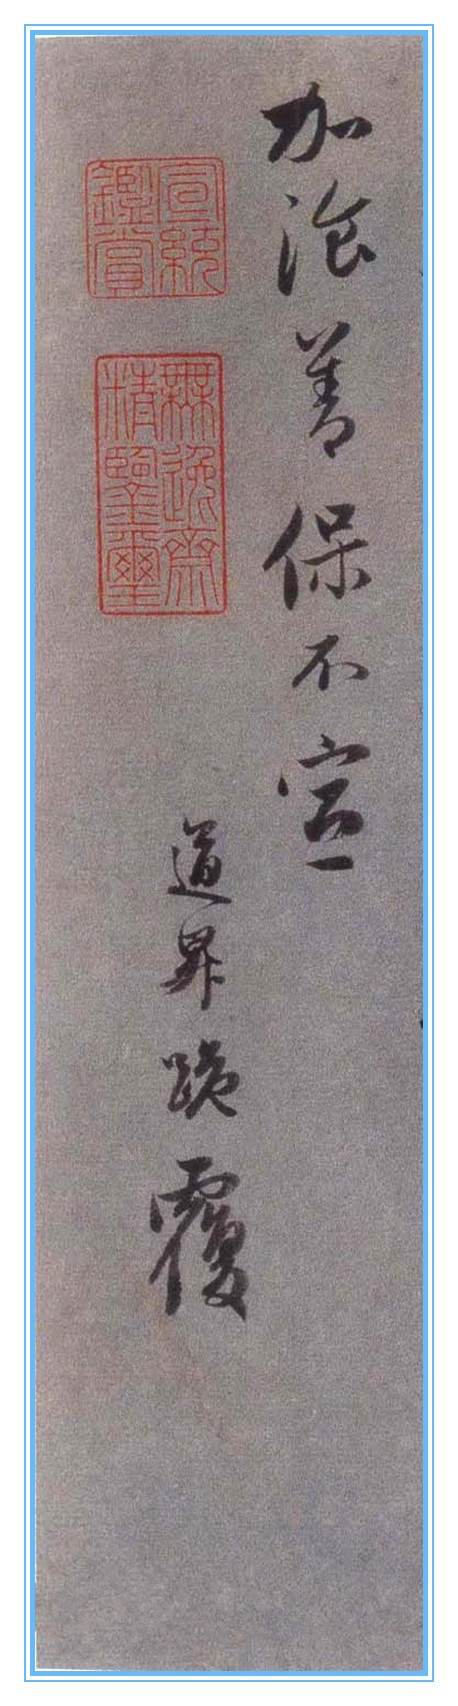 加飡善保不宣
道昇跪覆
宣統
鑑賞
無逸齋
精鑒璽